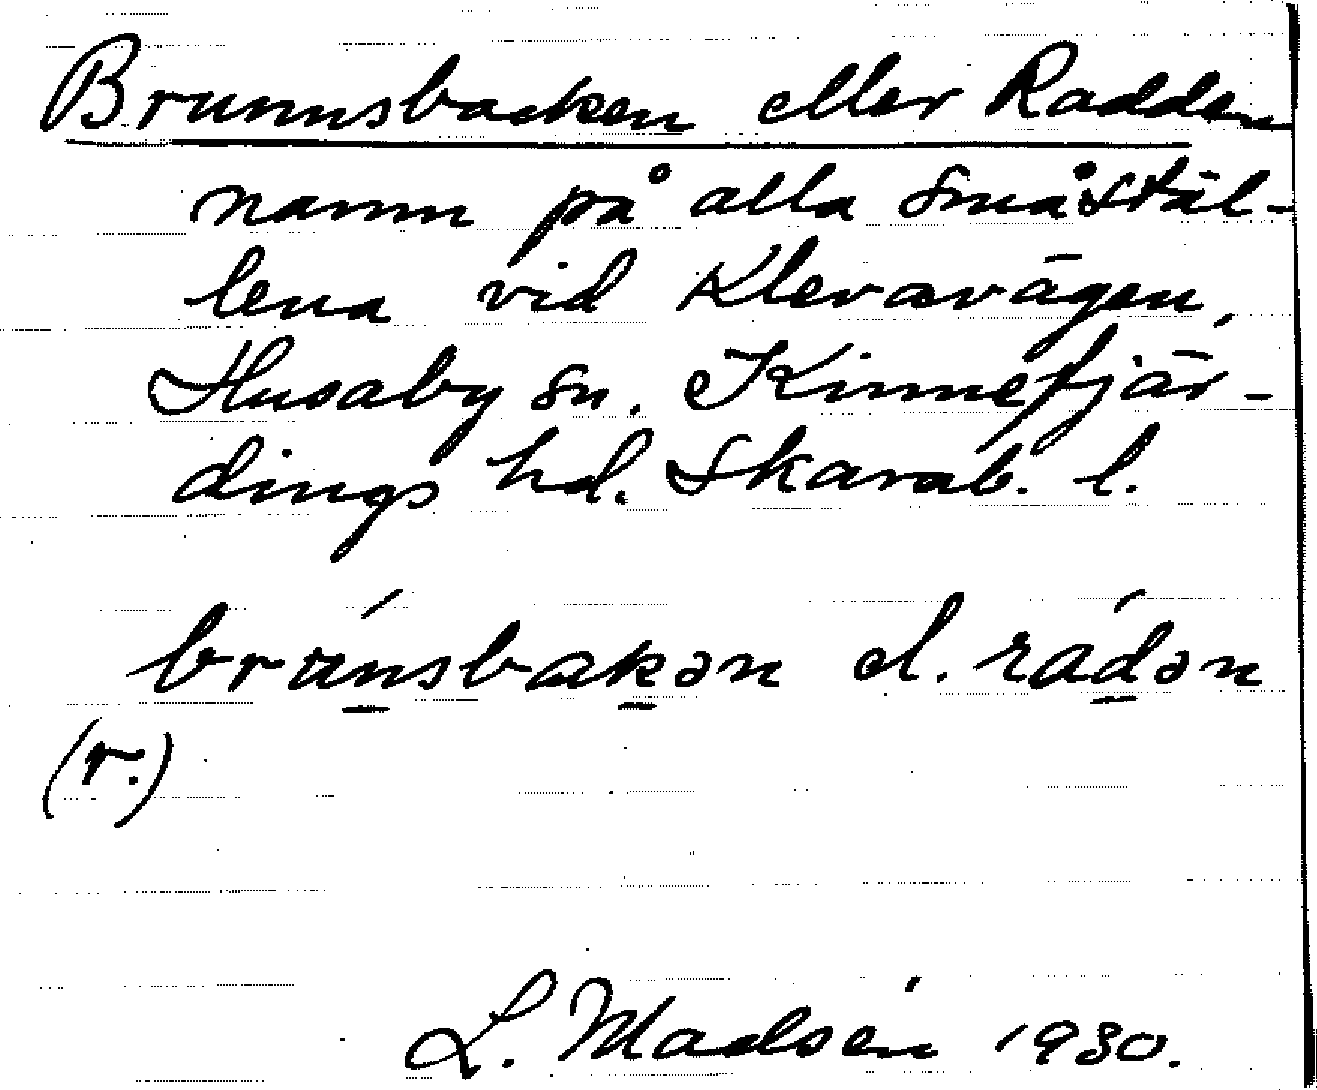 Brunnsbacken eller Radden
namn på alla småstäl-
lena vid Klevavägen,
Husaby sn. Kinnefjär-
dings hd. Skarab. l.
brúnsbakən el. rádən
(r.)
L. Madsén 1930.